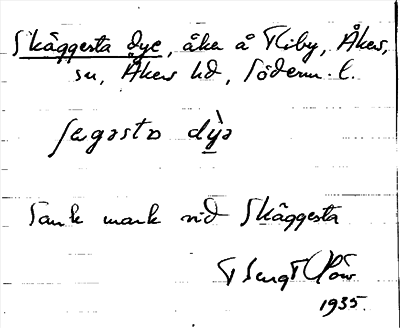 Skäggesta dye, åker å Kiby, Åkers
sn, Åkers hd, Söderm. l.
dỳə
Sank mark vid Skäggesta
Bengt
1935.